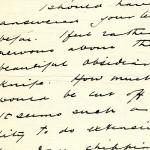 I should have
answered your
before. I feel rather
nervous about the
beautiful obsidian
knife. How much
would be cut off
It seems such a
pity to do extensive
chipping